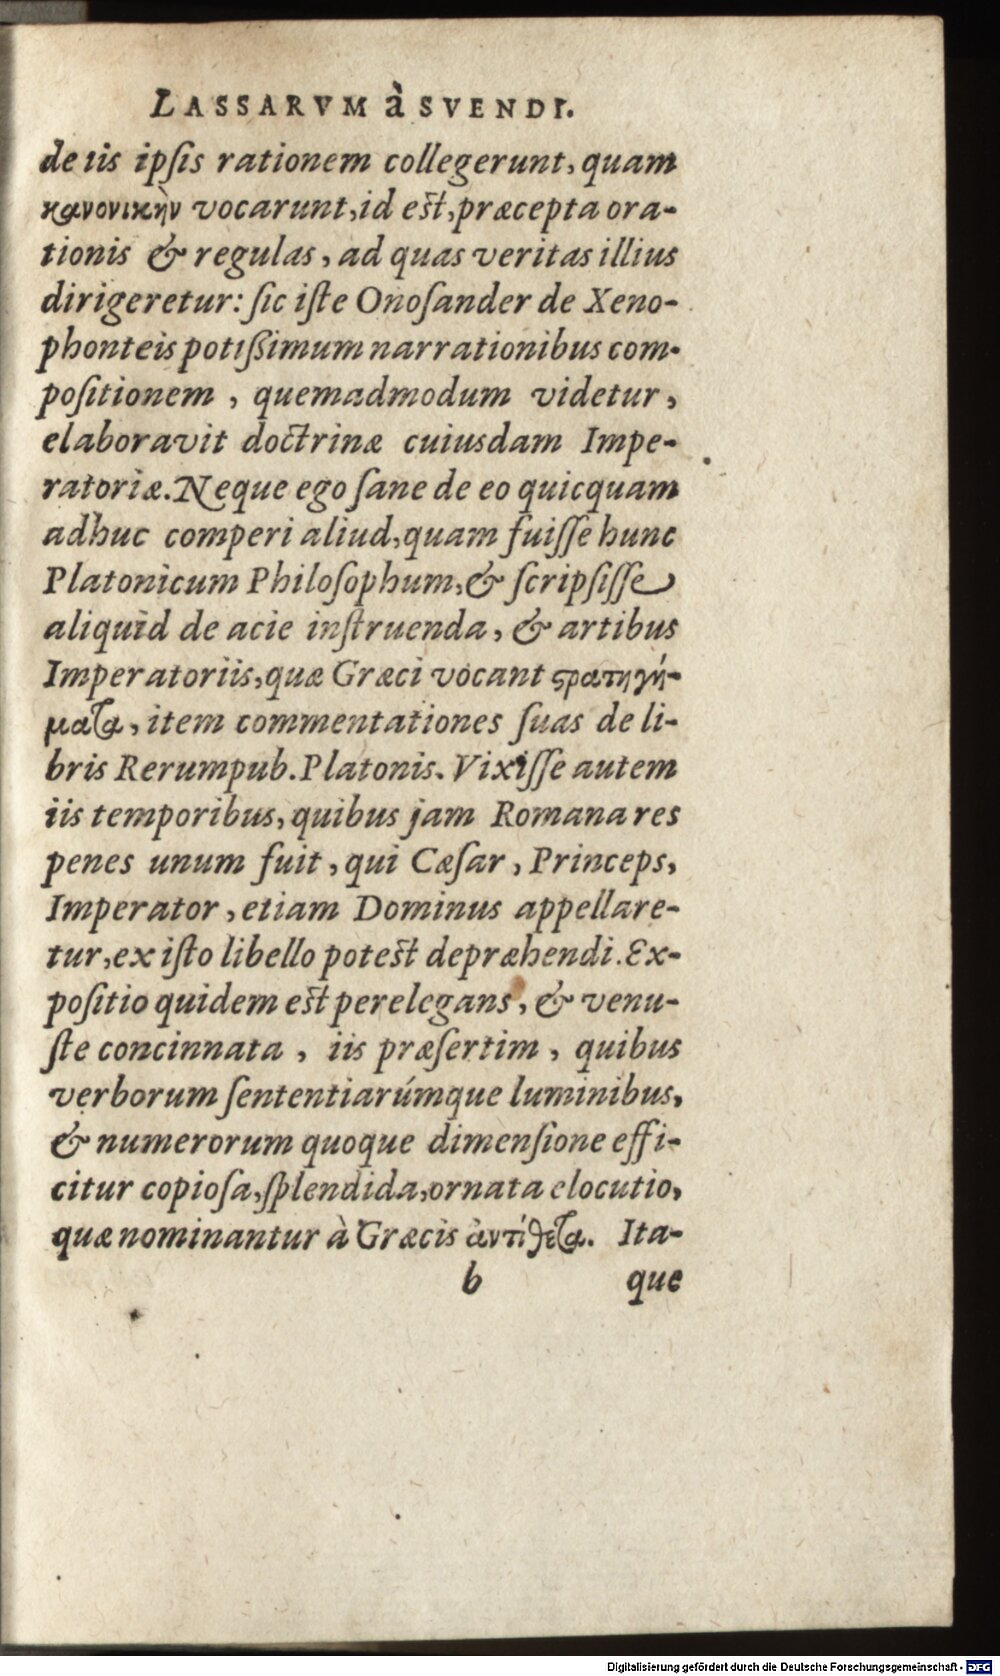 LASSARVM à SVENDI.
de iis ipſis rationem collegerunt, quam
κανονικὴν vocarunt, id est, præcepta ora-
tionis & regulas, ad quas veritas illius
dirigeretur: ſic iſte Onoſander de Xeno-
phonteis potißimum narrationibus com-
poſitionem, quemadmodum videtur,
elaboravit doctrinæ cuiusdam Impe-
ratoriæ. Neque ego ſane de eo quicquam
adhuc comperi aliud, quam fuiſſe hunc
Platonicum Philoſophum, & ſcripſiſſe
aliquid de acie inſtruenda, & artibus
Imperatoriis, quæ Græci vocant ϛρατηγή-
ματα, item commentationes ſuas de li-
bris Rerumpub. Platonis. Vixiſſe autem
iis temporibus, quibus jam Romana res
penes unum fuit, qui Cæſar, Princeps,
Imperator, etiam Dominus appellare-
tur, ex iſto libello potest depræhendi. Ex-
poſitio quidem est perelegans, & venu-
ſte concinnata, iis præſertim, quibus
verborum ſententiarúmque luminibus,
& numerorum quoque dimenſione effi-
citur copioſa, ſplendida, ornata elocutio,
quæ nominantur à Græcis ἀντίθετα. Ita-
b que
Digitalisierung gefördert durch die Deutsche Forschungsgemeinschaft - DFG